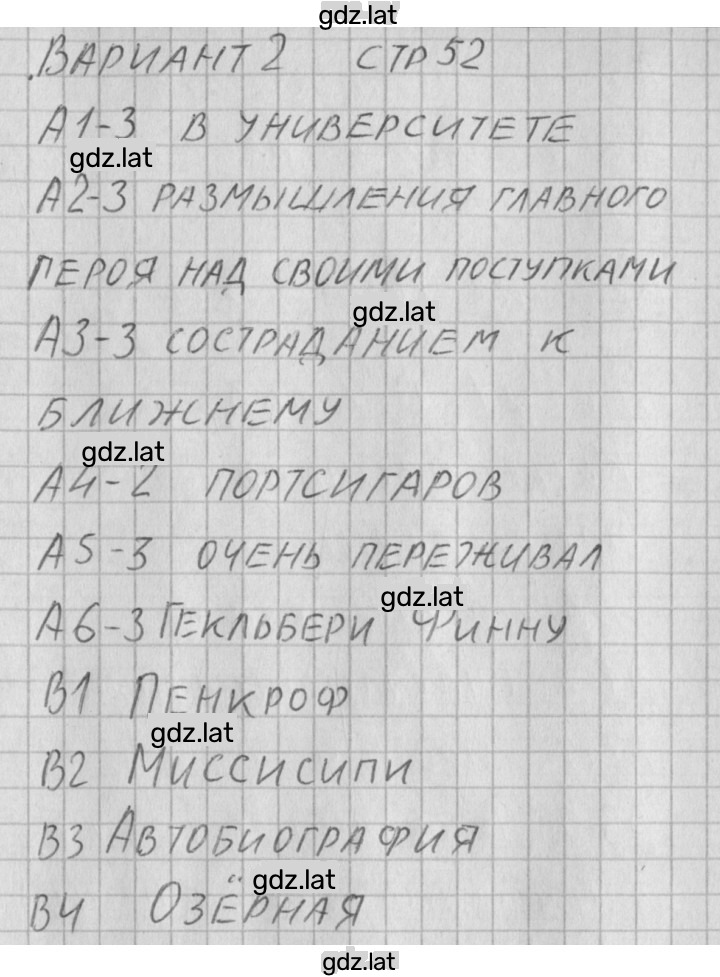 gdz.lat
ВАРИАНТ 2 СТР 52
А1-3 В УНИВЕРСИТЕТЕ
gdz.lat
А2-3 РАЗМЫШЛЕНИЯ ГЛАВНОГО
ГЕРОЯ НАД СВОИМИ ПОСТУПКАМИ
gdz.lat
А3-3 СОСТРАДАНИЕМ К
БЛИЖНЕМУ
gdz.lat
А4-2 ПОРТСИГАРОВ
А5-3 ОЧЕНЬ ПЕРЕЖИВАЛ
gdz.lat
А6-3 ГЕКЛЬБЕРИ ФИННУ
В1 ПЕНКРОФ
gdz.lat
В2 МИССИСИПИ
В3 АВТОБИОГРАФИЯ
gdz.lat
В4 ОЗЁРНАЯ
gdz.lat